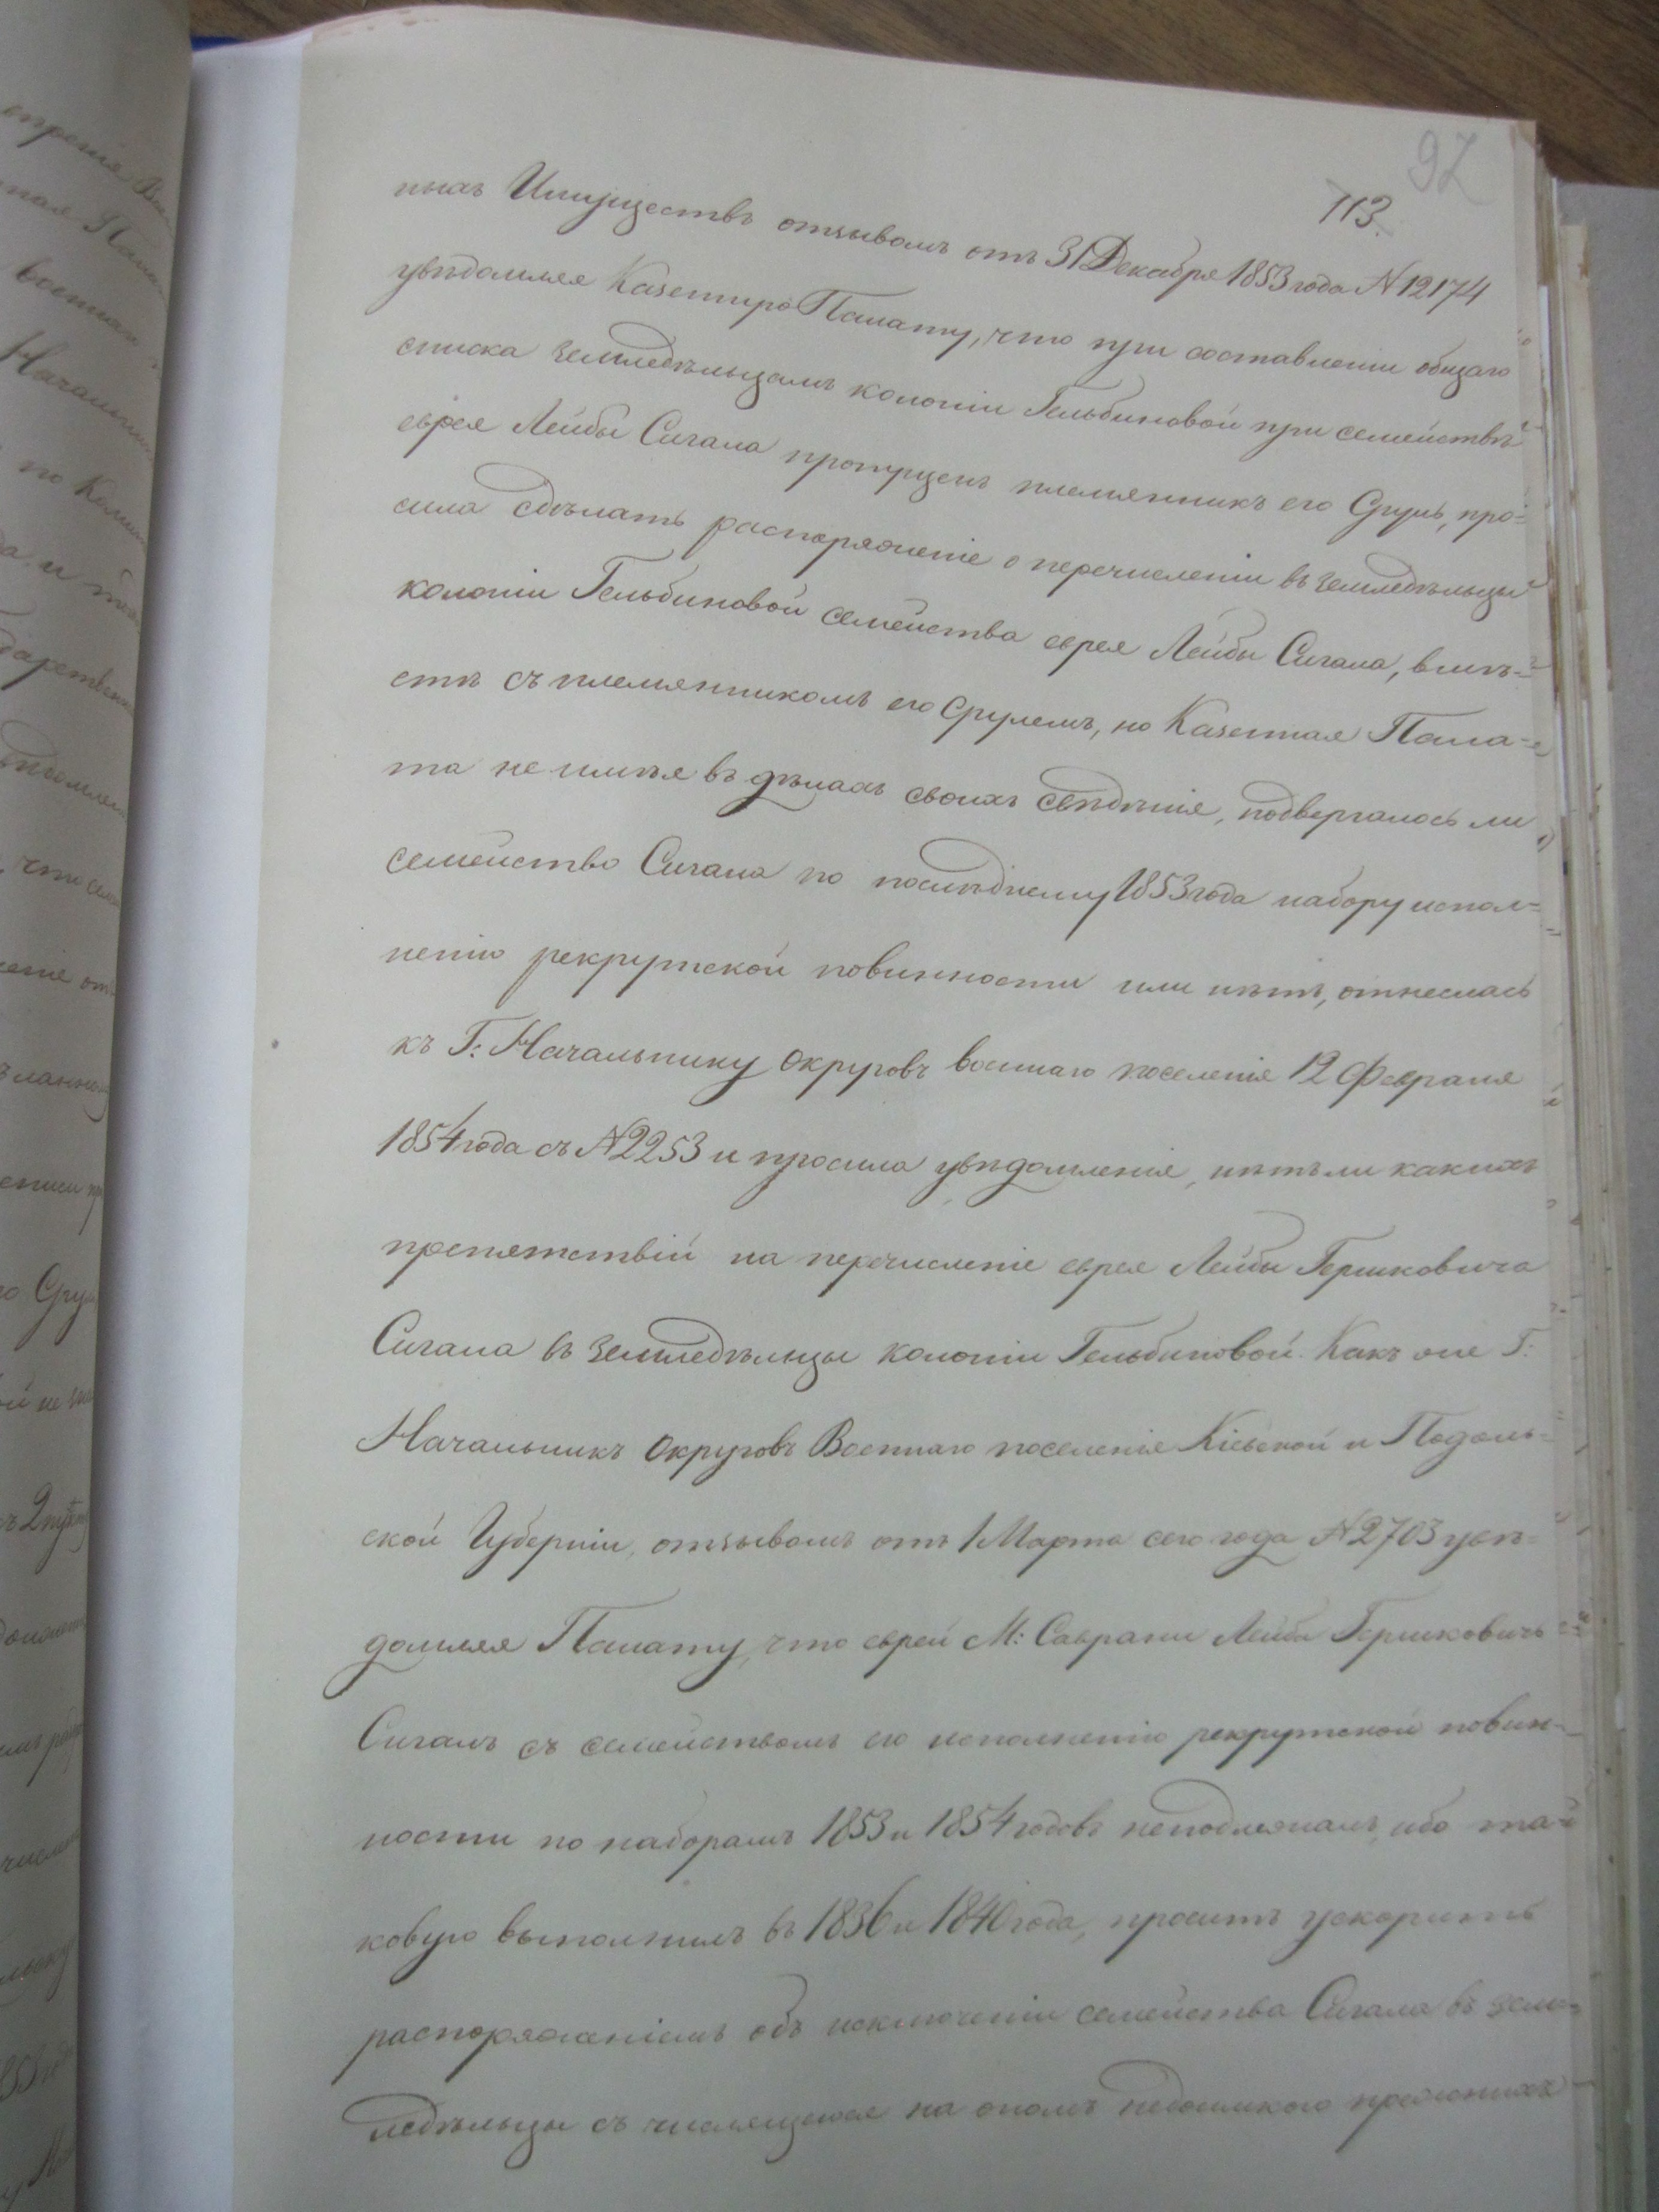 97
113.
ныхъ Имуществъ отзывомъ отъ 31 Декабря 1853 года № 12174
увѣдомляя Казенную Палату, что при составленіи общаго
списка земледѣльцамъ колоніи Гельбиновой при семействѣ
еврея Лейбы Сигала пропущенъ племянникъ его Сруль, про=
сила сдѣлать распоряженіе о перечисленіи въ земледѣльцы
колоніи Гельбиновой семейства еврея Лейбы Сигала, вмѣ=
стѣ съ племянникомъ его Срулемъ, но Казенная Пала=
та не имѣя въ дѣлахъ своихъ свѣдѣнія, подвергалось ли
семейство Сигала по послѣднему 1853 года набору испол=
ненію рекрутской повинности или нѣтъ, отнеслась
къ Г: Начальнику Округовъ военнаго поселенія 12 Февраля
1854 года съ № 2253 и просила увѣдомленія, нѣтъ ли какихъ
препятствій на перечисленіе еврея Лейбы Гершковича
Сигала въ земледѣльцы колоніи Гельбиновой. Какъ же Г:
Начальникъ Округовъ Военнаго поселенія Кіевской и Подоль=
ской Губерніи, отзывомъ отъ 1 Марта сего года № 2703 увѣ=
домляя Палату, что еврей М: Саврани Лейба Гершковичъ
Сигалъ съ семействомъ его исполненію рекрутской повин=
ности по наборамъ 1853 и 1854 годовъ неподлежалъ, ибо та=
ковую выполнилъ въ 1836 и 1840 года, проситъ ускорить
распоряженіемъ объ исключеніи семейства Сигала въ зем=
ледѣльцы съ числящеюся на ономъ недоимкою